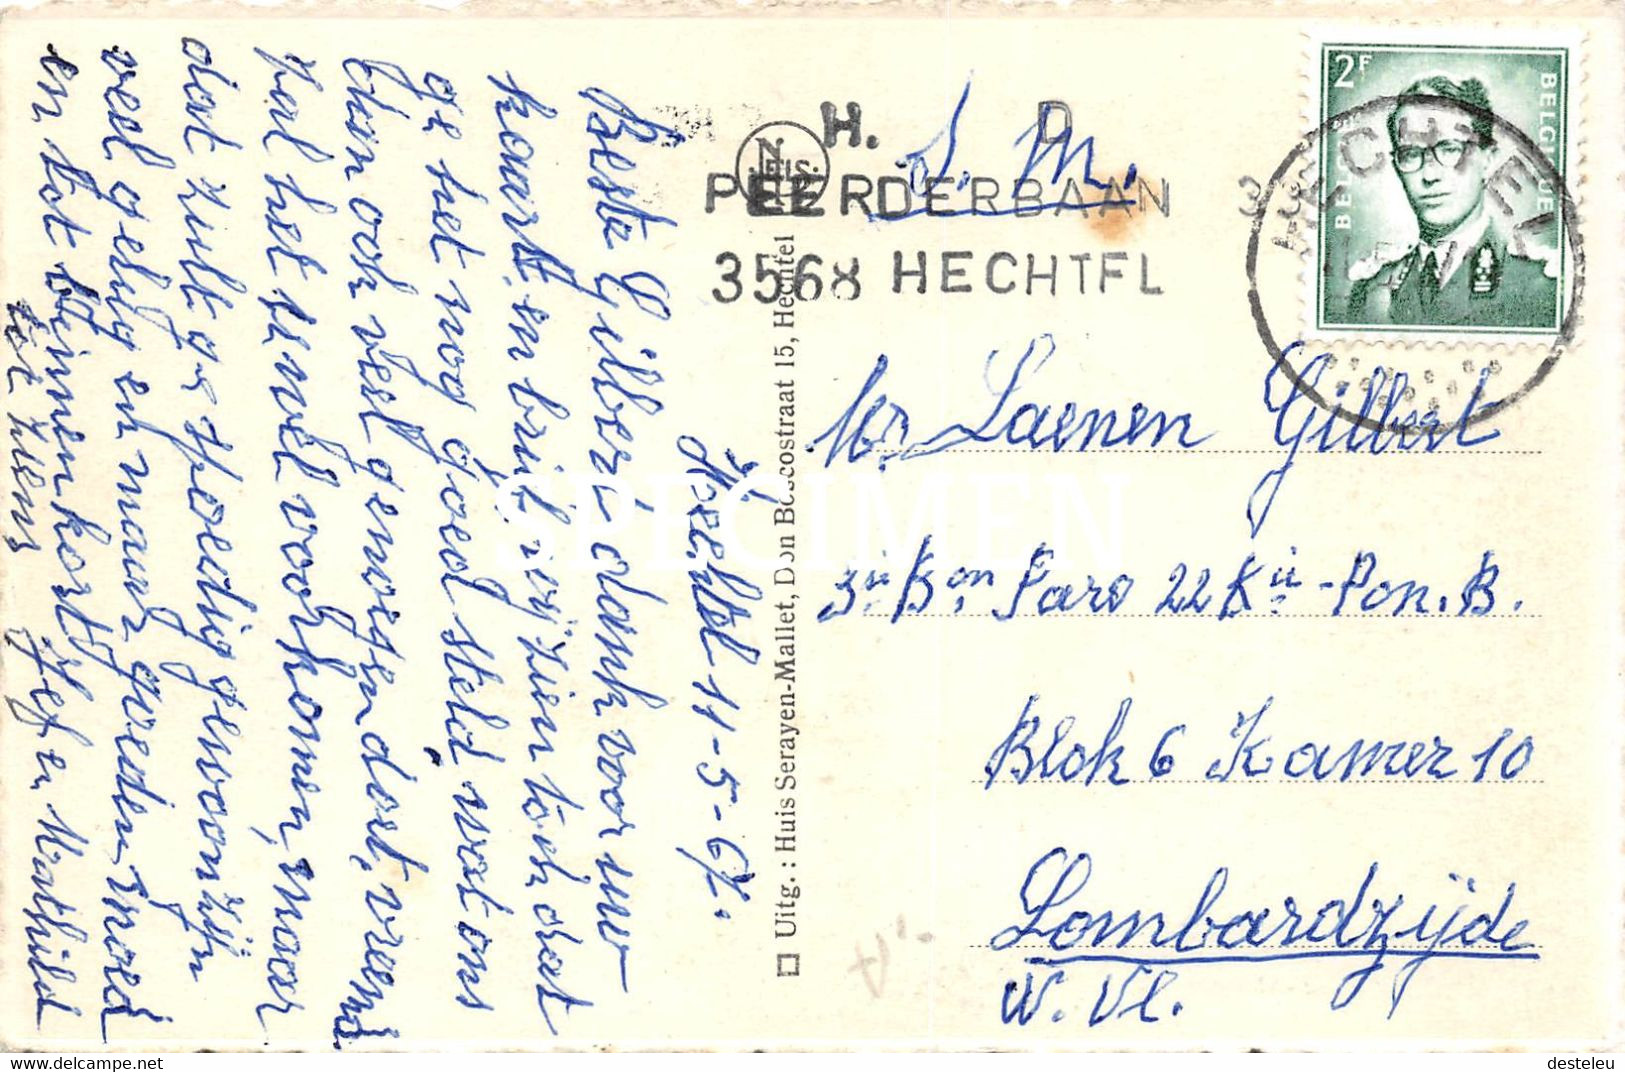 Hechtel 11-5-67.
Beste Gilbert dank voor uw
kaart, en brief, wij zien toch dat
ge het nog goed steld wat ons
dan ook veel genoegen doet, vreemd
zal het je wel voorkomen, maar
dat zult ge spoedig gewoon zijn
veel geluk en maar goeden moed
en tot binnenkort Jef en Mathild
tot ziens
Uitg. : Huis Serayen-Mallet, Don Boscostraat 15, Hechtel
H. D
PEERDERBAAN
3568 HECHTEL
S. M.
2F
BELGIQUE
HECHTEL
Mr. Laenen Gilbert
3e Bon Para 22 Kie - Pon. B.
Blok 6 Kamer 10
Lombardzijde
W. Vl.
SPECIMEN
https://www.delcampe.net
desteleu